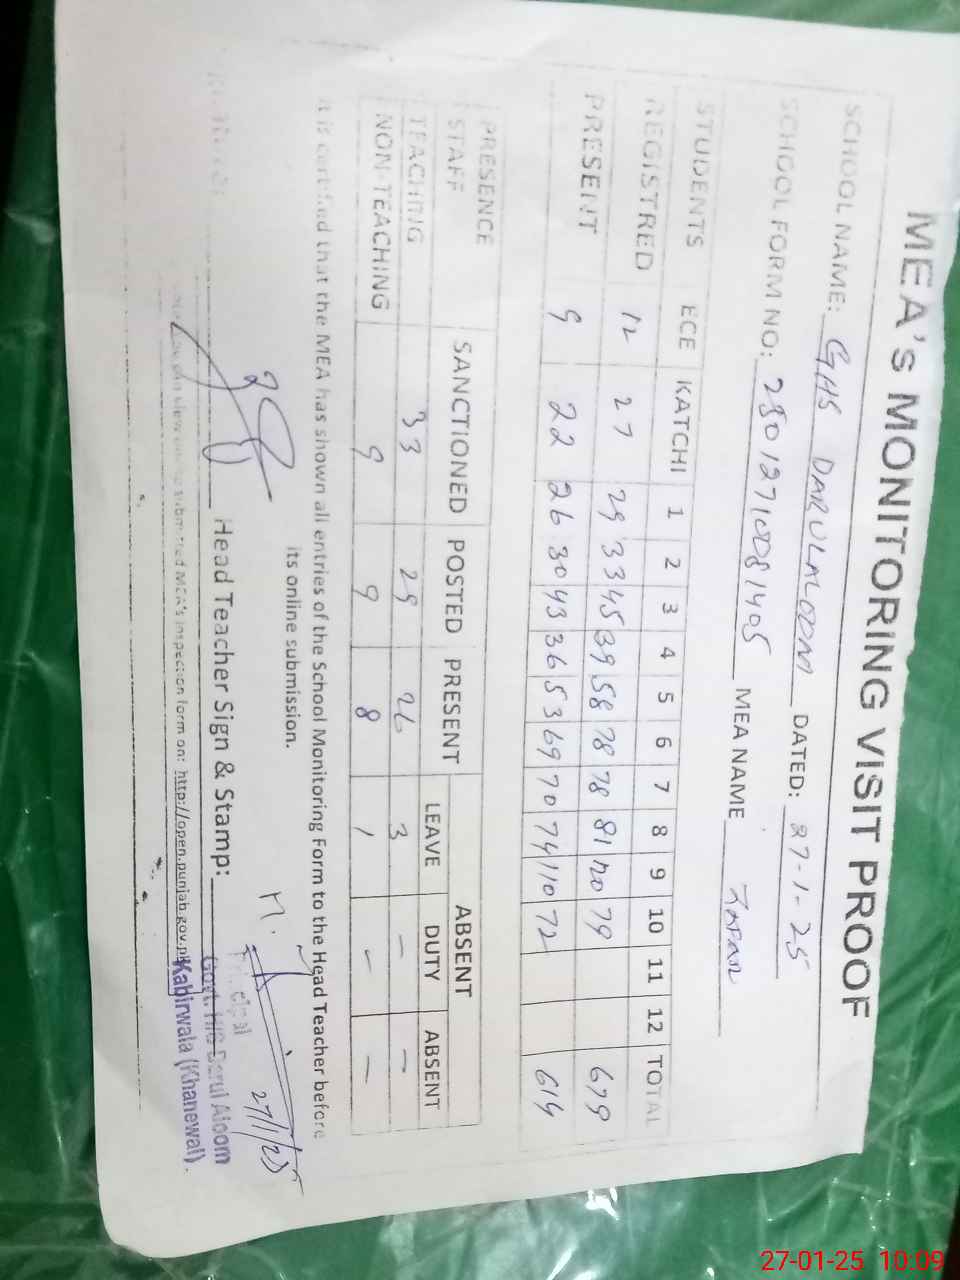 MEA's MONITORING VISIT PROOF
SCHOOL NAME: GHS DARULALOOM DATED: 27-1-25
SCHOOL FORM NO: 28012710081405 MEA NAME ZAFAR
STUDENTS ECE KATCHI 1 2 3 4 5 6 7 8 9 10 11 12 TOTAL
REGISTRED 12 27 29 33 45 39 58 78 78 81 120 79 679
PRESENT 9 22 26 30 43 36 53 69 70 74 110 72 614
PRESENCE SANCTIONED POSTED PRESENT ABSENT
STAFF LEAVE DUTY ABSENT
TEACHING 33 29 26 3 - -
NON-TEACHING 9 9 8 1 - -
It is certified that the MEA has shown all entries of the School Monitoring Form to the Head Teacher before
its online submission.
Head Teacher Sign & Stamp:
27/1/25
Principal
Govt. H/S Darul Aloom
Kabirwala (Khanewal).
can view submitted MEA's inspection form on: http://open.punjab.gov.pk
27-01-25 10:09